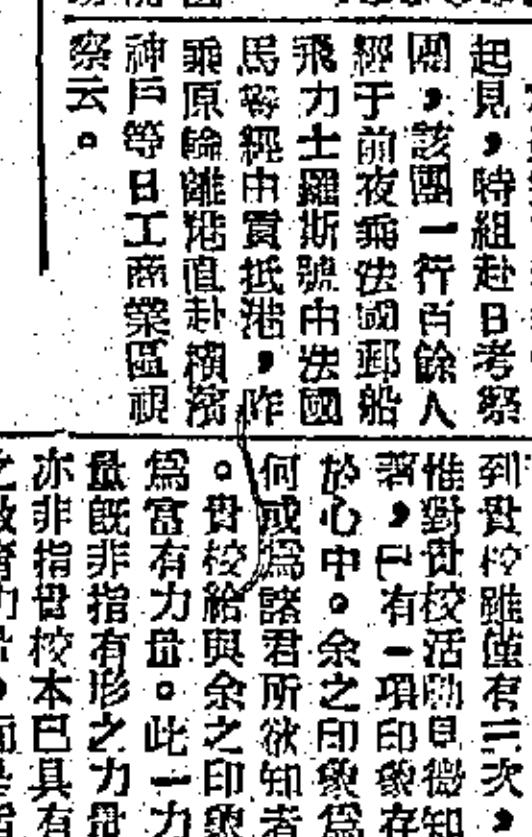 起見，時組赴日考察
團，該團一行百餘人
經于前夜乘法國郵船
飛力士羅斯號由法國
馬等經由賣抵港，昨
乘原輪離港直赴橫濱
神戶等日工商業區視
察云。
到貴校雖僅有三次，
惟對貴校活動見微知
著，已有一項印象存
於心中。余之印象爲
何或爲諸君所欲知者
。貴校給與余之印象
爲富有力量。此一力
量既非指有形之力量
亦非指貴校本已具有
之